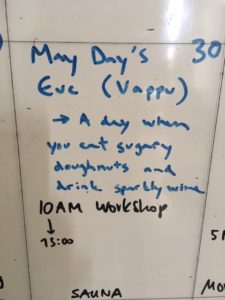 May Day's 30
Eve (Vappu)
→ A day when
you eat sugary
doughnuts and
drink sparkly wine
10AM Workshop
↓
15:00
SAUNA